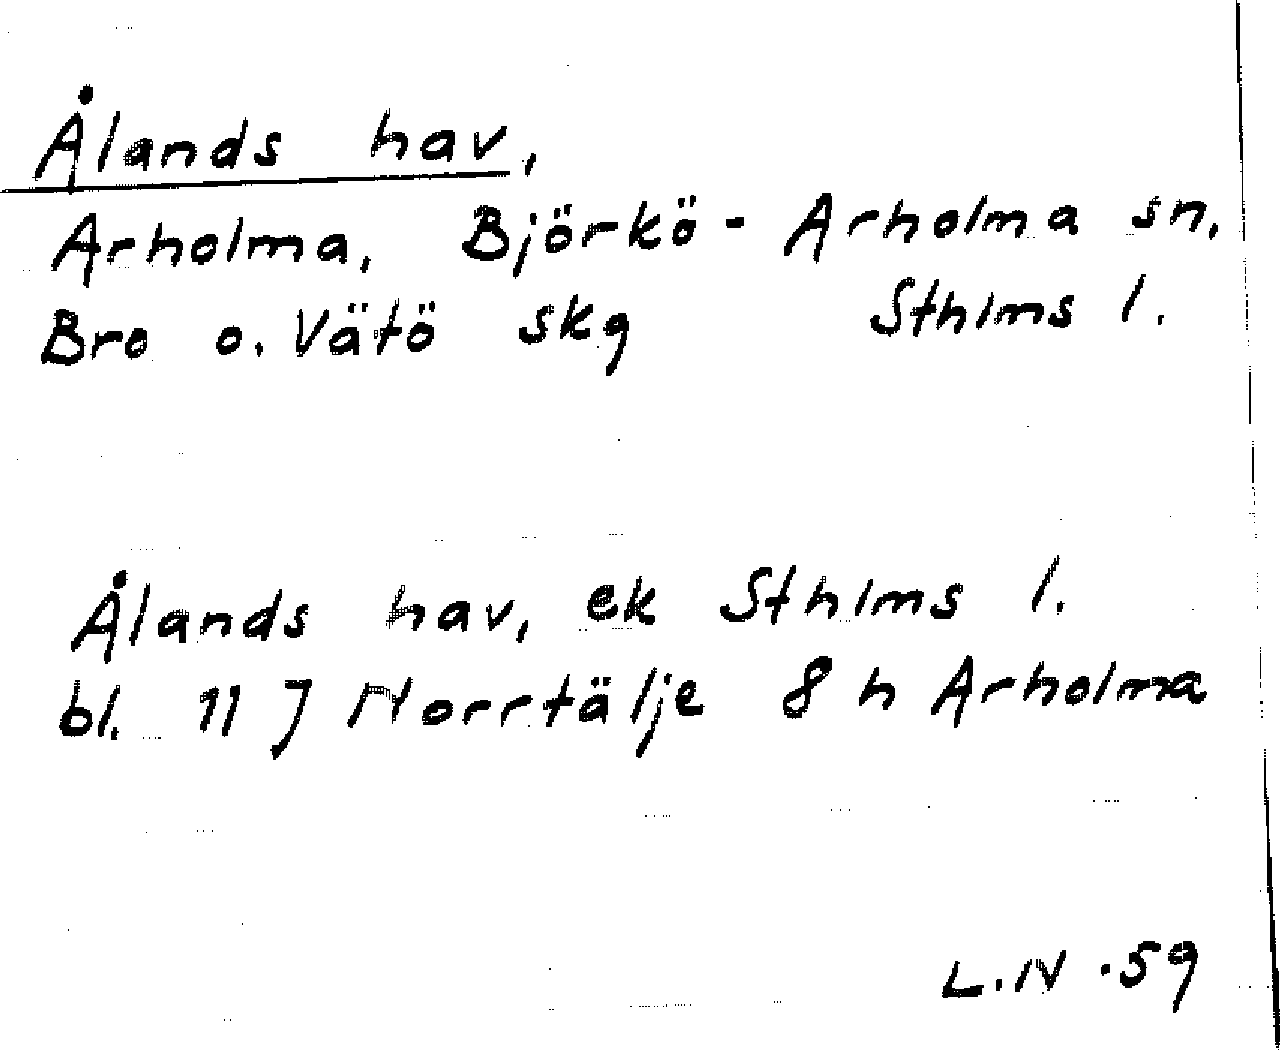 Ålands hav,
Arholma, Björkö - Arholma sn.
Bro o. Vätö skg Sthlms l.
Ålands hav, ek Sthlms l.
bl. 11 J Norrtälje 8 h Arholma
L.N .59